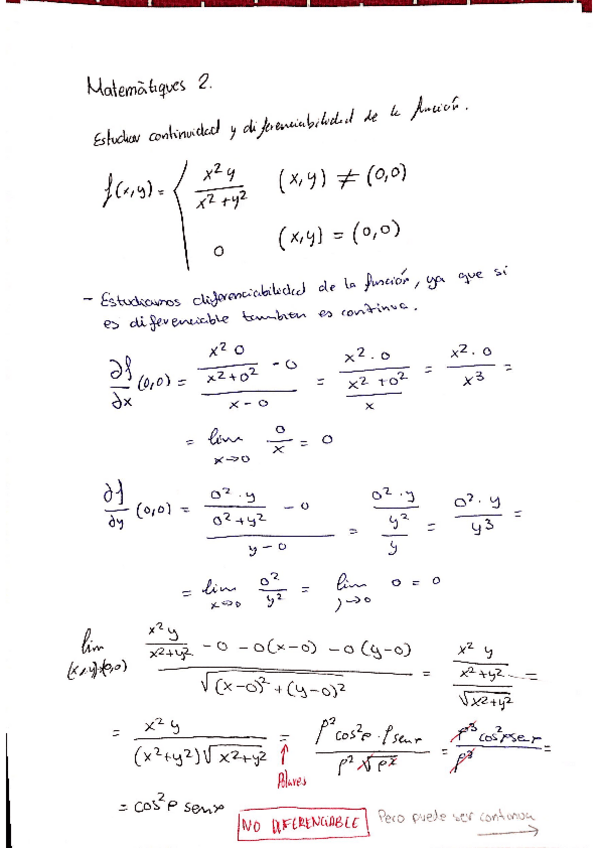 Matemàtiques 2.
Estudiar continuidad y diferenciabilidad de la función.
f(x,y) = { x²y / (x²+y²)   (x,y) ≠ (0,0)
0   (x,y) = (0,0)
- Estudiamos diferenciabilidad de la función, ya que si
es diferenciable tambien es continua.
∂f/∂x (0,0) = ((x² 0)/(x²+0²) - 0)/(x-0) = ((x²·0)/(x²+0²))/x = (x²·0)/x³ =
= lim x→0 0/x = 0
∂f/∂y (0,0) = ((0²·y)/(0²+y²) - 0)/(y-0) = ((0²·y)/y²)/y = (0²·y)/y³ =
= lim x→0 0²/y² = lim y→0 0 = 0
lim (x,y)→(0,0) (x²y/(x²+y²) - 0 - 0(x-0) - 0(y-0))/√((x-0)²+(y-0)²) = (x²y/(x²+y²))/√(x²+y²) =
= x²y/((x²+y²)√(x²+y²)) = ρ²cos²ρ·ρsenr/(ρ²√ρ²) = ρ³cos²ρsenr/ρ³ =
Polares
= cos²ρ senr
NO DIFERENCIABLE Pero puede ser continua